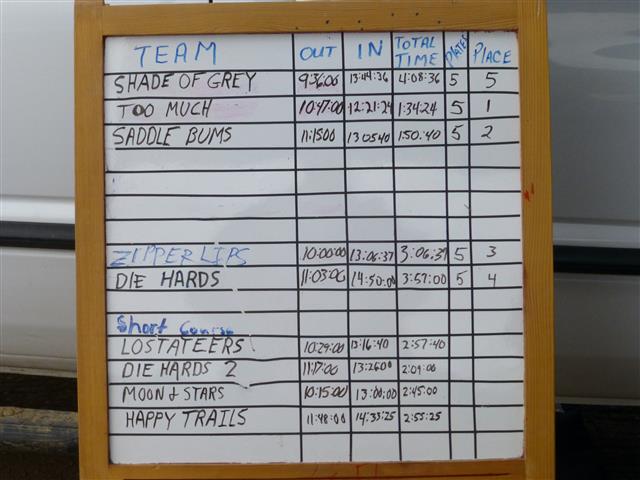 TEAM OUT IN TOTAL TIME PLATES PLACE
SHADE OF GREY 9:36:00 13:44:36 4:08:36 5 5
TOO MUCH 10:47:00 12:21:24 1:34:24 5 1
SADDLE BUMS 11:15:00 13:05:40 1:50:40 5 2
ZIPPER LIPS 10:00:00 13:06:37 3:06:37 5 3
DIE HARDS 11:03:00 14:50:00 3:57:00 5 4
Short Course
LOSTATEERS 10:29:00 13:16:40 2:57:40
DIE HARDS 2 11:17:00 13:26:00 2:09:00
MOON & STARS 10:15:00 13:00:00 2:45:00
HAPPY TRAILS 11:48:00 14:33:25 2:55:25